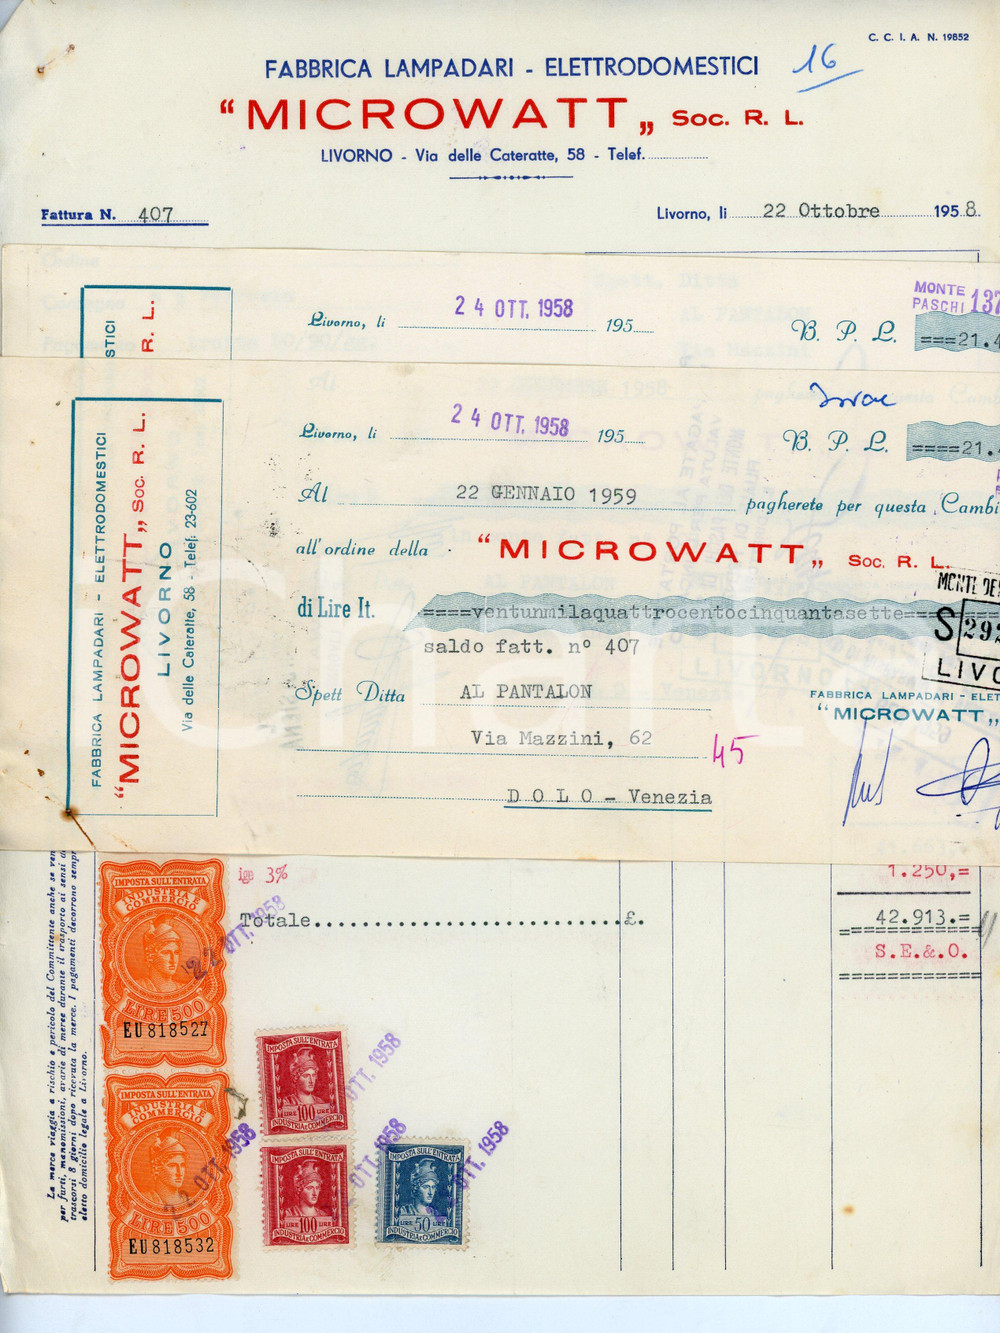 C. C. I. A. N. 19852
FABBRICA LAMPADARI - ELETTRODOMESTICI
16
"MICROWATT„ Soc. R. L.
LIVORNO - Via delle Cateratte, 58 - Telef.
Fattura N. 407
Livorno, li 22 Ottobre 1958
STICI
R. L.
Livorno, li 24 OTT. 1958 195
B. P. L. ===21.4
MONTE
PASCHI 137
FABBRICA LAMPADARI - ELETTRODOMESTICI
"MICROWATT„ Soc. R. L.
LIVORNO
Via delle Cateratte, 58 - Telef. 23-602
Livorno, li 24 OTT. 1958 195
B. P. L. ====21.4
Al 22 GENNAIO 1959 pagherete per questa Cambi
all'ordine della "MICROWATT„ Soc. R. L.
di Lire It. =====ventunmilaquattrocentocinquantasette===
saldo fatt. n° 407
Spett Ditta AL PANTALON
Via Mazzini, 62
45
DOLO - Venezia
MONTE DE
S 292
LIVO
FABBRICA LAMPADARI - ELET
"MICROWATT„
La merce viaggia a rischio e pericolo del Committente anche se ven
per furti, manomissioni, avarie di merce durante il trasporto ai sensi d
trascorsi 8 giorni dopo ricevuta la merce. I pagamenti decorrono sempr
eletto domicilio legale a Livorno.
ige 3%
1.250,=
Totale..............................£. 42.913.=
S.E.&.O.
IMPOSTA SULL'ENTRATA
INDUSTRIA E COMMERCIO
LIRE 500
EU 818527
22 OTT. 1958
IMPOSTA SULL'ENTRATA
INDUSTRIA E COMMERCIO
LIRE 500
EU 818532
22 OTT. 1958
IMPOSTA SULL'ENTRATA
LIRE 100 LIRE
INDUSTRIA E COMMERCIO
OTT. 1958
IMPOSTA SULL'ENTRATA
LIRE 100 LIRE
INDUSTRIA E COMMERCIO
OTT. 1958
IMPOSTA SULL'ENTRATA
LIRE 50 LIRE
INDUSTRIA E COMMERCIO
OTT. 1958